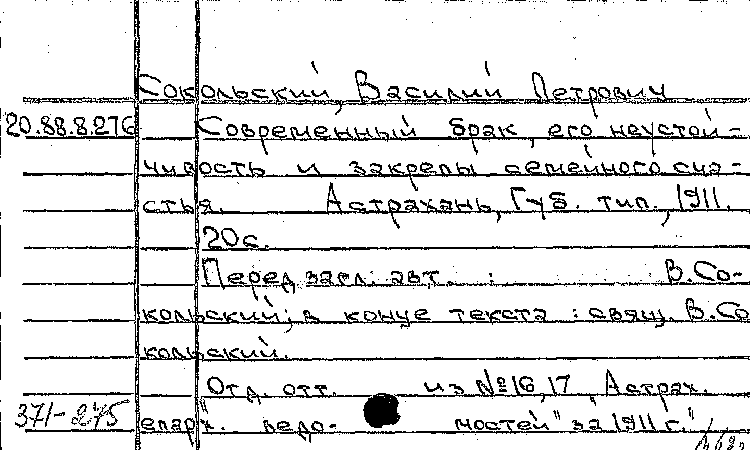 Сокольский, Василий Петрович
20.88.8.276 Современный брак, его неустой-
чивость и закрепы семейного сча-
стья. Астрахань, Губ. тип., 1911.
20с.
Перед загл. авт. : В.Со-
кольский; в конце текста : свящ. В.Со
кольский.
Отд. отт. из №16,17 „Астрах.
371-275 епарх. ведо- мостей" за 1911 г."